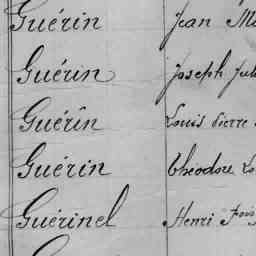 Guérin Jean
Guérin Joseph
Guérin Louis Pierre
Guérin Théodore
Guérinel Henri Fois